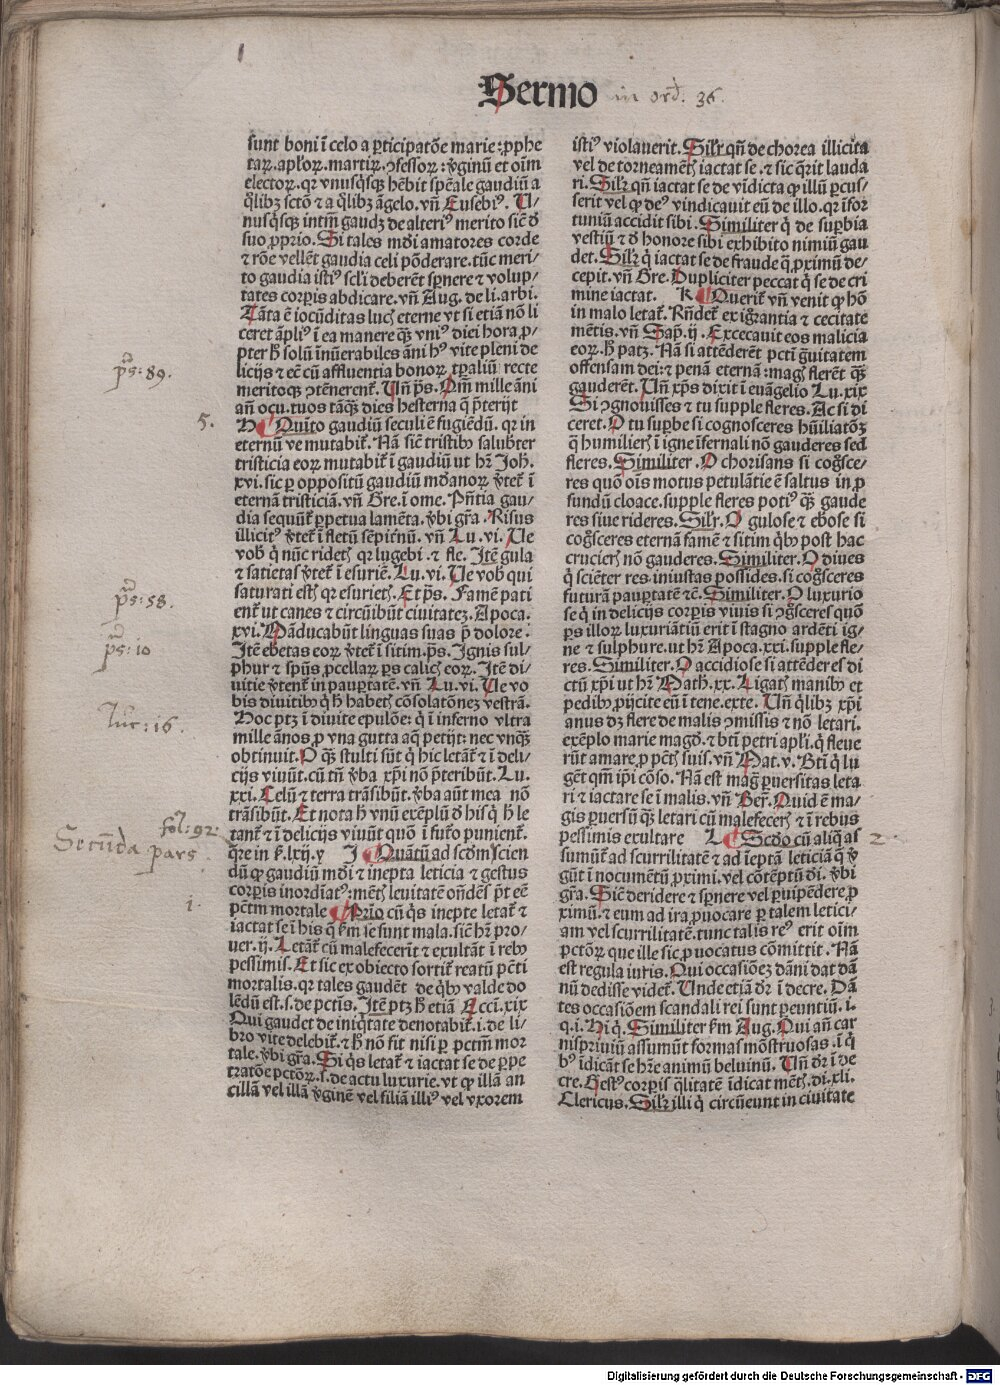 Sermo in ord. 36.
sunt boni ī celo a ꝑticipatōe marie: ꝓphe
taꝝ. apl'oꝝ. martiꝝ. ꝯfessoꝝ: v̄ginū et oīm
electoꝝ. qr vnusqͥsqꝫ hēbit spēale gaudiū a
qͦlibꝫ scтō ⁊ a qͦlibꝫ āgelo. vn̄ Eusebiꝰ. U-
nusqͥsqꝫ intm̄ gaudꝫ de alteriꝰ merito sic̄ d̄
suo ꝓprio. Si tales mūdi amatores corde
⁊ rōe vellēt gaudia celi pōderare. tūc meri-
to gaudia istiꝰ scl'i deberēt sꝑnere ⁊ volup-
tates corꝑis abdicare. vn̄ Aug. de li. arbi.
Tāta ē iocūditas lucꝭ eterne vt si etiā nō li
ceret āpliꝰ ī ea manere qꝫ̄ vniꝰ diei hora, ꝓ-
pter h̄ solū īnūerabiles āni hꝰ vite pleni de
licijs ⁊ cū affluentia bonoꝝ tꝑaliū recte
meritoqꝫ ꝯtēnerent᷑. Vn̄ ps̄. Qm̄ mille āni
an̄ ocu. tuos tāqꝫ dies hesterna q̄ p̄terijt
H Quīto gaudiū seculi ē fugiēdū. qr in
eternū ve mutabit᷑. Nā sic̄ tristibꝰ salubr̄ter
tristicia eoꝝ mutabit᷑ ī gaudiū ut hr̄ Joh̄.
xvi. sic ꝑ oppositū gaudiū mūdanoꝝ v̄tet᷑ ī
eternā tristiciā. vn̄ Gre. ī ome. Pn̄tia gau-
dia sequūt᷑ ꝑpetua lamēta. v̄bi gr̄a. Risus
illicitꝰ v̄tet᷑ ī fletū sēpit'nū. vn̄ Lu. vi. Ve
vob̄ qͥ nūc ridetꝭ qr lugebi. ⁊ fle. Itē gula
⁊ satietas v̄tet᷑ ī esuriē. Lu. vi. Ve vob̄ qui
saturati estꝭ qr esurietꝭ. Et ps̄. Famē pati
ent᷑ ut canes ⁊ circūibūt ciuitatez. Apoca.
xvi. Māducabūt linguas suas p̄ dolore.
Itē ebetas eoꝝ v̄tet᷑ ī sitim. ps̄. Ignis sul-
phur ⁊ spūs ꝓcellaꝝ ꝑs calicꝭ eoꝝ. Itē di-
uitie v̄tent᷑ in pauꝑtatē. vn̄ Lu. vi. Ve vo
bis diuitibꝰ qͥ h̄ habetꝭ cōsolatōnez vestrā.
Hoc ptꝫ ī diuite epulōe: qͥ ī inferno vltra
mille ānos ꝓ vna gutta aq̄ petijt: nec vnqꝫ̄
obtinuit. O qꝫ̄ stulti sūt qͥ hic letāt᷑ ⁊ ī deli-
cijs viuūt. cū tn̄ v̄ba xp̄i nō p̄teribūt. Lu.
xxi. Celū ⁊ terra trāsibūt. v̄ba aūt mea nō
trāsibūt. Et nota h̄ vnū exēplū d̄ his qͥ h̄ le
tant᷑ ⁊ ī delicijs viuūt quō ī fut'o punient᷑.
q̄re in f. lxij. y I Quātū ad scd̄m scien
dū qͫ gaudiū mūdi ⁊ inepta leticia ⁊ gestus
corꝑis inordiatꝰ: mētꝭ leuitatē ondēs p̄t eē
pctm̄ mortale Prīo cū qͥs inepte letat᷑ ⁊
iactat se ī his q̄ fm se sunt mala. sic̄ hr̄ pro-
uer. ij. Letāt᷑ cū malefecerīt ⁊ exultāt ī rebꝰ
pessimis. Et sic ex obiecto sortit᷑ reatū pcti
mortalis. qr tales gaudēt de qͥbꝰ valde do
lēdū est. s. de pctis. Itē ptꝫ h̄ etiā Ecci. xix
Qui gaudet de iniqͥtate denotabit᷑. i. de li-
bro vite delebit᷑. ⁊ h̄ nō fit nisi ꝑ pctm̄ mor
tale. v̄bi gr̄a. Si qͥs letat᷑ ⁊ iactat se de ꝑpe
tratōe pctōꝝ. s. de actu luxurie. vt qͫ illā an
cillā vel illā v̄ginē vel filiā illiꝰ vel vxorem
istiꝰ violauerit. Sil'r qn̄ de chorea illicita
vel de torneamētꝭ iactat se. ⁊ sic q̄rit lauda
ri. Sil'r qn̄ iactat se de vīdicta qͫ illū ꝑcus-
serit vel qͫ deꝰ vindicauit eū de illo. qr īfor
tuniū accidit sibi. Similiter qͥ de suꝑbia
vestiū ⁊ d̄ honore sibi exhibito nimiū gau
det. Sil'r qͥ iactat se de fraude q̄ ꝓximū de-
cepit. vn̄ Gre. Dupliciter peccat qͥ se de cri
mine iactat. K Querit᷑ vn̄ venit qͫ hō
in malo letat᷑. Rn̄det᷑ ex ignorantia ⁊ cecitate
mētis. vn̄ Sap. ij. Excecauit eos malicia
eoꝝ. h̄ patꝫ. Nā si attēderēt pcti ḡuitatem
offensam dei: ⁊ penā eternā: magꝭ flerēt qꝫ̄
gauderēt. Vn̄ xp̄s dixit ī euāgelio Lu. xix
Si ꝯgnouisses ⁊ tu supple fleres. Ac si di
ceret. O tu suꝑbe si cognosceres hūiliatōꝫ
q̄ humilierꝭ ī igne īfernali nō gauderes sed
fleres. Similiter. O chorisans si cog̓sce-
res quō oīs motus petulātie ē saltus in ꝓ
fundū cloace. supple fleres potiꝰ qꝫ̄ gaude
res siue rideres. Sil'r. O gulose ⁊ ebose si
cog̓sceres eternā famē ⁊ sitim qͥbꝰ post hac
crucierꝭ nō gauderes. Similiter. O diues
qͥ sciēter res iniustas possides. si cog̓sceres
futurā pauꝑtatē ⁊c̄. Similiter. O luxurio
se qͥ in delicijs corꝑis viuis si ꝯg̓sceres quō
ꝑs illoꝝ luxuriātiū erit ī stagno ardēti ig-
ne ⁊ sulphure. ut hr̄ Apoca. xxi. supple fle-
res. Similiter. O accidiose si attēderes di
ctū xp̄i ut hr̄ Math. xx. Ligatꝭ manibꝰ et
pedibꝰ ꝓijcite eū ī tene. exte. Vn̄ qͦlibꝫ xp̄i
anus dꝫ flere de malis ꝯmissis ⁊ nō letari.
exēplo marie magd̄. ⁊ bt̄i petri apl'i. qͥ fleue
rūt amare ꝓ pctꝭ suis. vn̄ Mat. v. Bt̄i qͥ lu
gēt qm̄ ip̄i cōso. Nā est mag̓ ꝑuersitas leta
ri ⁊ iactare se ī malis. vn̄ Ber̄. Quid ē ma-
gis ꝑuersū qꝫ̄ letari cū malefecerꝭ ⁊ ī rebꝰ
pessimis exultare L Scd̓o cū aliqͥ as
sumūt᷑ ad scurrilitatē ⁊ ad īeptā leticiā q̄ v̄
gūt ī nocumētū ꝓximi. vel cōtēptū di. v̄bi
gr̄a. Sic̄ deridere ⁊ sꝑnere vel ꝑuipēdere ꝓ
ximū. ⁊ eum ad irā ꝓuocare ꝑ talem letici-
am vel scurrilitatē. tunc talis reꝰ erit oīm
pctōꝝ que ille sic ꝓuocatus cōmittit. Nā
est regula iuris. Qui occasiōez dāni dat dā
nū dedisse videt᷑. Unde etiā dr̄ ī decre. Dā
tes occasiōem scandali rei sunt ꝑeuntiū. i.
q. i. Hi q̄. Similiter fm Aug. Qui an̄ car
nispriuiū assumūt formas mōstruosas. ī qͥ
bꝰ īdicāt se hr̄e animū beluinū. Vn̄ dr̄ ī de
cre. Gestꝰ corꝑis q̄litatē īdicat mētꝭ. di. xli.
Clericus. Sil'r illi qͥ circūeunt in ciuitate
ps: 89.
5.
ps: 58.
ps: 10
Luc: 16.
fol: 92
Secūda pars
1.
2
Digitalisierung gefördert durch die Deutsche Forschungsgemeinschaft - DFG